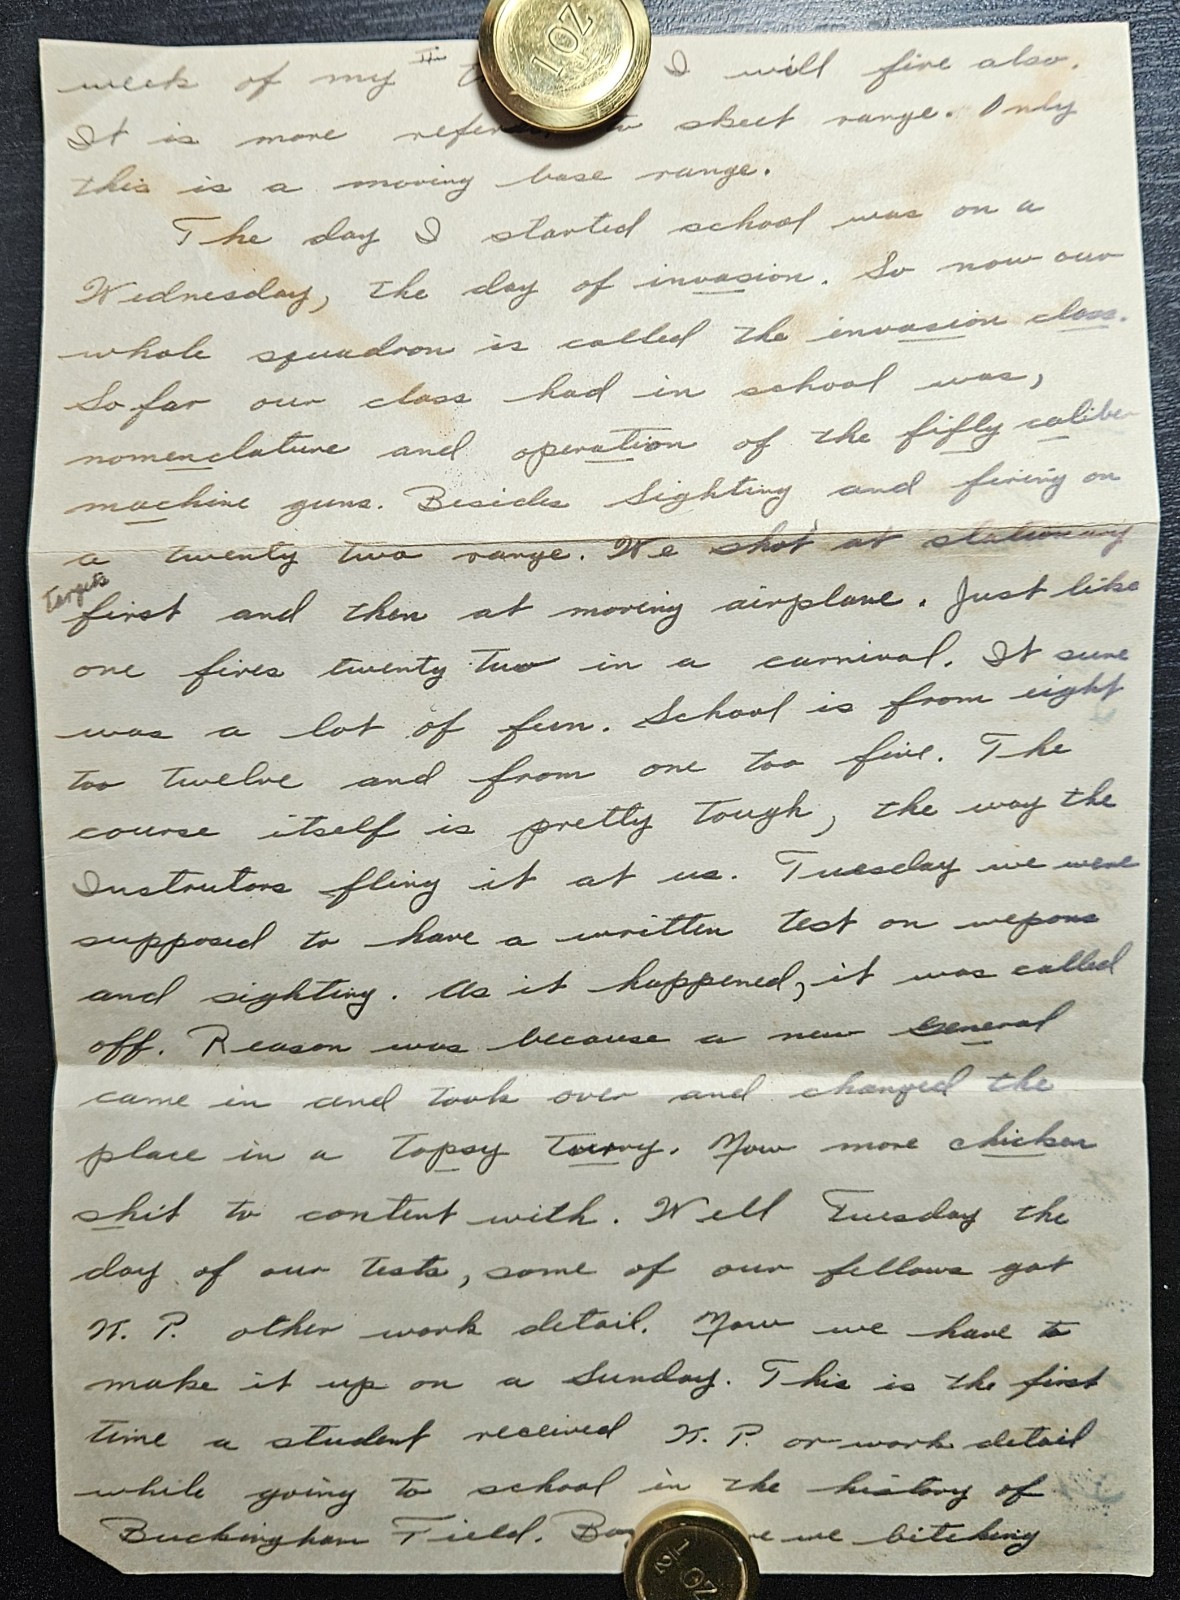 1 OZ
week of my I will fire also.
It is more to skeet range. Only
this is a moving base range.
The day I started school was on a
Wednesday, the day of invasion. So now our
whole squadron is called the invasion class.
So far our class had in school was,
nomenclature and operation of the fifly caliber
machine guns. Besides Sighting and firing on
a twenty two range. We shot at stationary
targets
first and then at moving airplane. Just like
one fires twenty two in a carnival. It sure
was a lot of fun. School is from eight
too twelve and from one too five. The
course itself is pretty tough, the way the
Instrutors fling it at us. Tuesday we were
supposed to have a written test on wepons
and sighting. As it happened, it was called
off. Reason was because a new General
came in and took over and changed the
place in a topsy turvy. Now more chicken
shit to content with. Well Tuesday the
day of our tests, some of our fellows got
K. P. other work detail. Now we have to
make it up on a Sunday. This is the first
time a student received K. P. or work detail
while going to school in the history of
Buckingham Field. we bitching
1/2 OZ